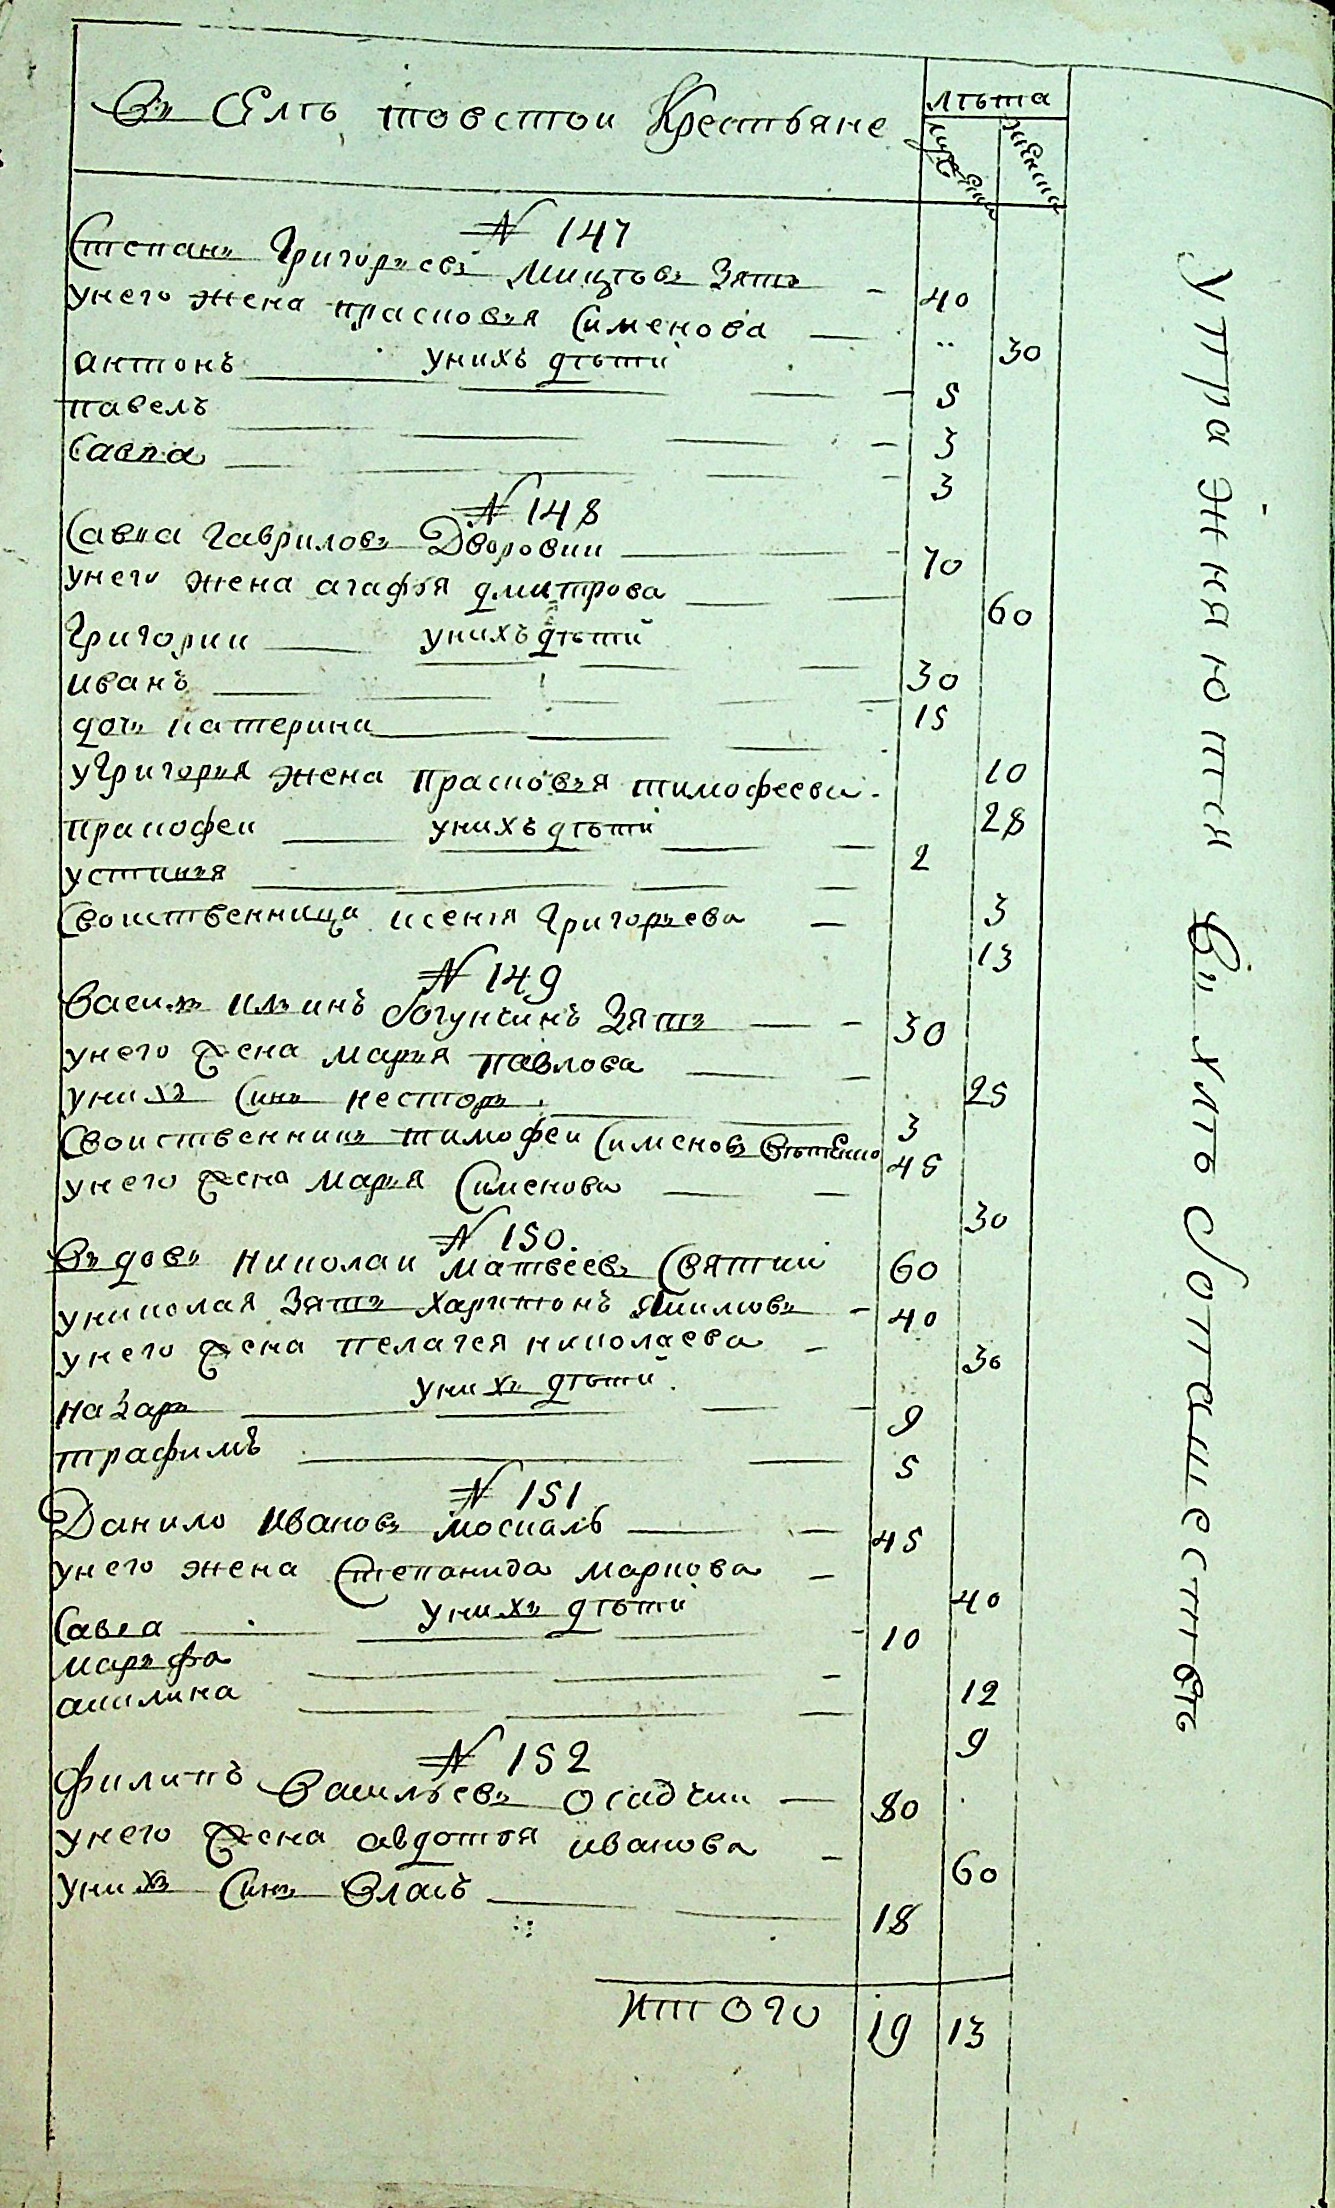 Въ Селѣ товстои Крестьяне
лѣта
мужеска
женска
№ 147
Степанъ Григорьевъ Мицѣвъ Зять 40
унего жена прасковья Сименова 30
унихъ дѣти
антонъ 5
павелъ 3
Савка 3
№ 148
Савка Гаврилов Дворовии 70
унего жена агафья дмитрова 60
унихъ дѣти
Григории 30
иванъ 15
дочь катерина 10
уГригория жена прасковья тимофеева 28
унихъ дѣти
пракофеи 2
устиния 3
Своиственница ксения Григорьева 13
№ 149
Васили илинъ Богунчинъ Зять 30
унего жена мария павлова 25
унихъ Синъ несторъ 3
Своиственникъ тимофеи Сименовъ 45
унего жена мария Сименова 30
№ 150
Вьдовъ николаи матвеевъ Святии 60
униколая Зять харитонъ якимовъ 40
унего жена пелагея николаева 30
унихъ дѣти
назаръ 9
трафимъ 5
№ 151
Данило ивановъ москаль 45
унего жена Степанида маркова 40
унихъ дѣти
Савка 10
марьфа 12
акилина 9
№ 152
филипъ Васильевъ осадчии 80
унего жена авдотья иванова 60
унихъ Синъ Власъ 18
итого 19 13
упражняются Въ хлѣбопашествѣ